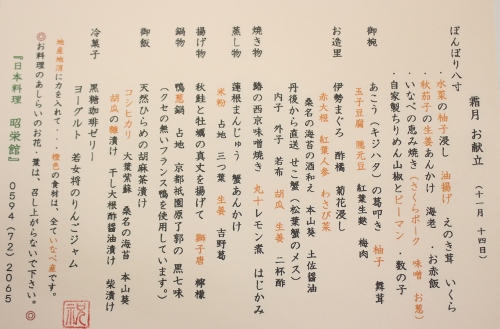 霜月 お献立 (十一月 十四日)
ぼんぼり八寸
・水菜の柚子浸し 油揚げ えのき茸 いくら
・秋茄子の生姜あんかけ 海老 ・お赤飯
・いなべの恵み焼き(さくらポーク 味噌 お葱)
・自家製ちりめん山椒とピーマン ・数の子
御椀
あこう(キジハタ)の葛叩き 柚子 舞茸
玉子豆腐 鶏元豆 紅葉生麩 梅肉
お造里
伊勢まぐろ 酢橘 菊花浸し
赤大根 紅葉人参 わさび菜
桑名の海苔の酒和え 本山葵 土佐醤油
丹後から直送 せこ蟹(松葉蟹のメス)
内子 外子 若布 胡瓜 生姜 二杯酢
焼き物
鰆の西京味噌焼き 丸十レモン煮 はじかみ
蒸し物
蓮根まんじゅう 蟹あんかけ
米粉 占地 三つ葉 生姜 吉野葛
揚げ物
秋鮭と牡蠣の真丈を揚げて 獅子唐 檸檬
鍋物
鴨葱鍋 占地 京都祇園原了郭の黒七味
(クセの無いフランス鴨を使用しています。)
御飯
天然ひらめの胡麻茶漬け
コシヒカリ 大葉紫蘇 桑名の海苔 本山葵
胡瓜の糠漬け 干し大根酢醤油漬け 柴漬け
冷菓子
黒糖珈琲ゼリー
ヨーグルト 若女将のりんごジャム
地産地消に力を入れて・・・橙色の食材は、全ていなべ産です。
◎お料理のあしらいのお花・葉は、召し上がらないで下さい。◎
『日本料理 昭栄館』 0594(72)2065
祝